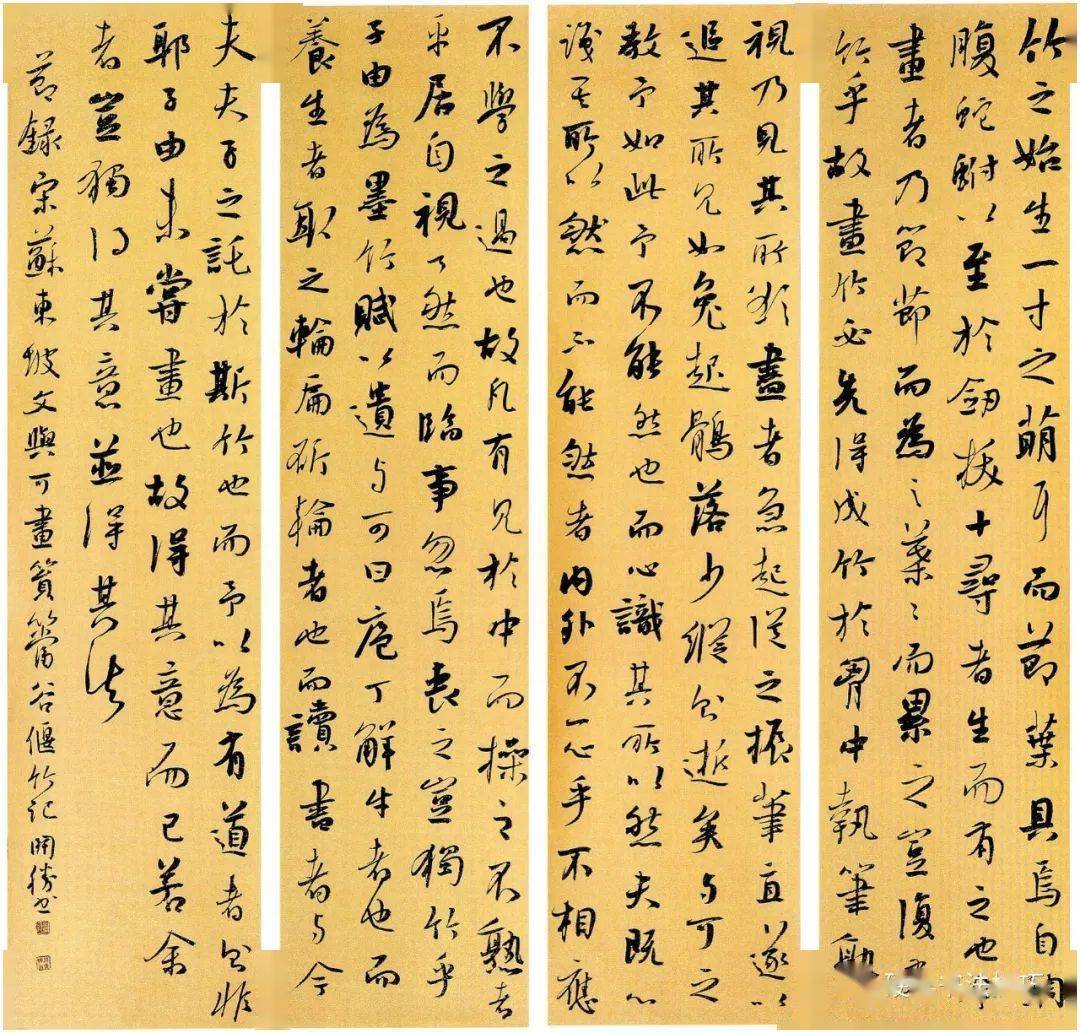 竹之始生一寸之萌耳而節葉具焉自蜩
腹蛇蚹以至於劒拔十尋者生而有之也
畫者乃節節而為之葉葉而累之豈復
竹乎故畫竹必先得成竹於胷中執筆熟
視乃見其所欲畫者急起從之振筆直遂以
追其所見如兔起鶻落少縱則逝矣与可之
教予如此予不能然也而心識其所以然夫既心
識其所以然而不能然者內外不一心手不相應
不學之過也故凡有見於中而操之不熟者
平居自視了然而臨事忽焉喪之豈獨竹乎
子由為墨竹賦以遺与可曰庖丁解牛者也而
養生者取之輪扁斫輪者也而讀書者与今
夫夫子之託於斯竹也而予以為有道者則非
耶子由未嘗畫也故得其意而已若余
者豈獨得其意並得其法
節錄宋蘇東坡文與可畫篔簹谷偃竹記開勝書